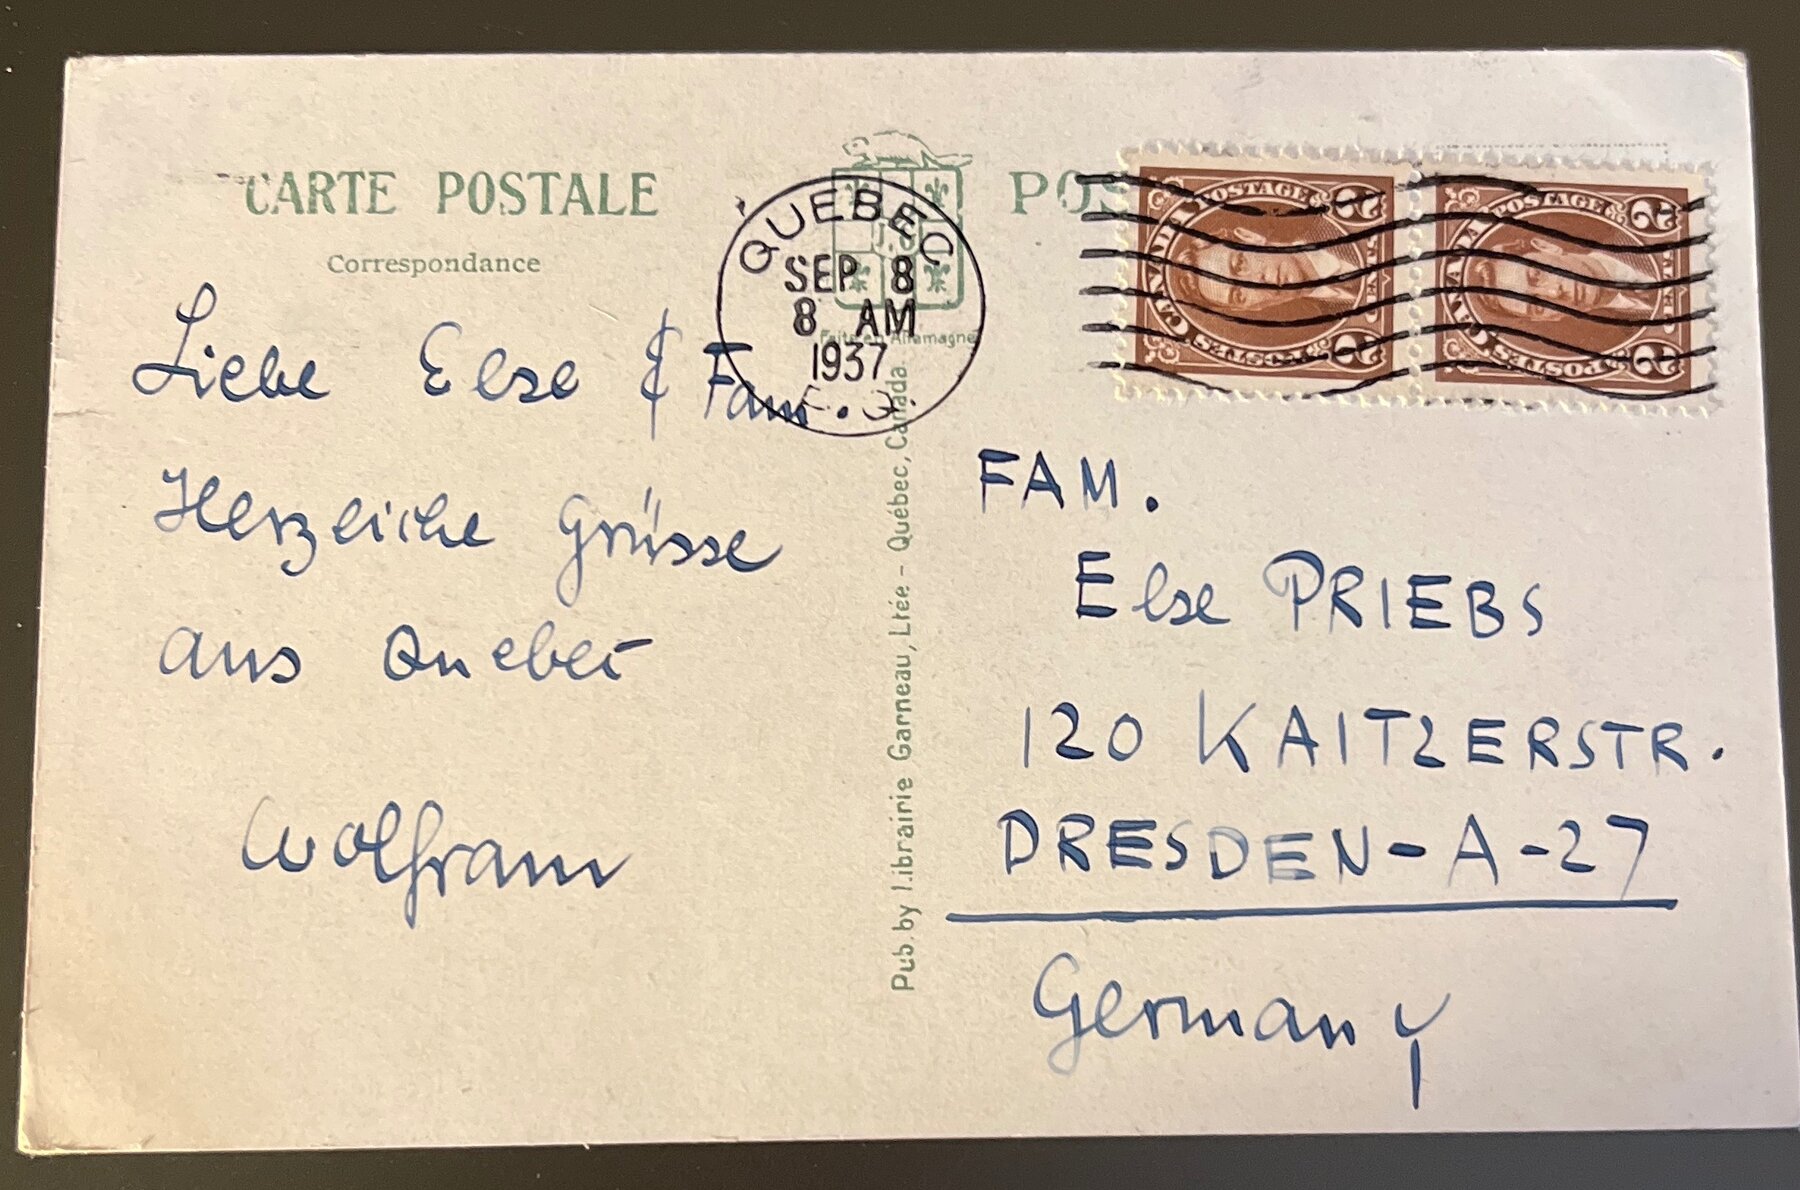 CARTE POSTALE
Correspondance
POS
QUEBEC
SEP 8
8 AM
1937
P. Q.
Faite en Allemagne
CANADA POSTAGE
POSTES
2 2
CANADA POSTAGE
POSTES
2 2
Liebe Else & Fam.
Herzliche Grüsse
aus Quebec
Wolfram
Pub. by Librairie Garneau, Ltée - Québec, Canada.
FAM.
Else PRIEBS
120 KAITZERSTR.
DRESDEN-A-27
Germany